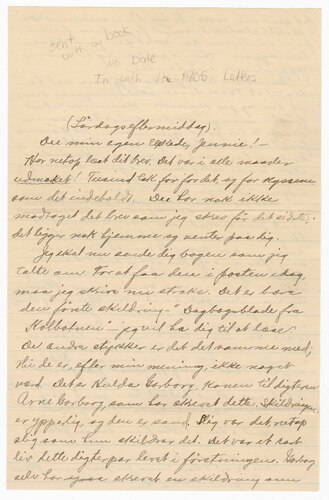 sent with a book
no date
In with the 1905 letters
(Lørdagseftermiddag).
Du min egen Elskede, Jennie! —
Har netop læst dit brev. Det var i alle maader
udmerket! Tusind tak for det, og for kyssene
som det indeholdt. Du har nok ikke
modtaget det brev som jeg skrev før det sidste;
det ligger nok hjemme og venter paa dig.
Jeg skal nu sende dig bogen som jeg
talte om. For at faa den i posten idag
maa jeg skrive nu straks. Det er bare
den første skildring — "Dagbogsblade fra
Kolbotnen" — jeg vil ha dig til at læse.
De andre stykker er det det samme med,
thi de er, efter min mening, ikke noget
værd. Det er Hulda Garborg, konen til digteren
Arne Garborg, som har skrevet dette. Skildringen
er ypperlig, og den er sand. Slig var det netop
slig som hun skildrer det. Det var et rart
liv dette digterpar levet i førstningen. Garborg
selv har skrevet en skildring om